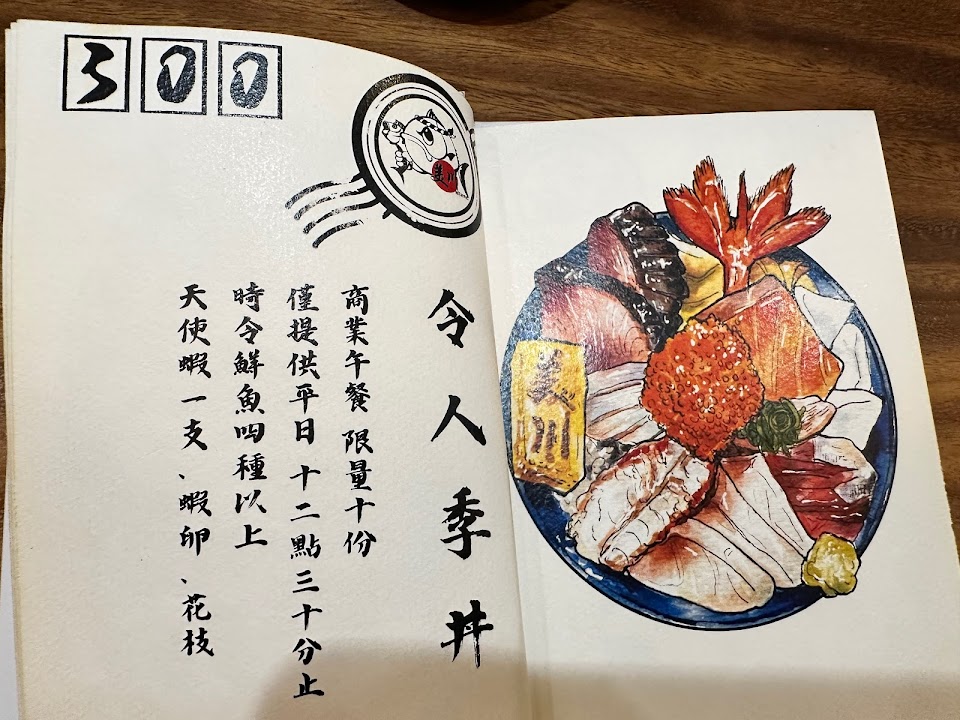 300
令人季丼
商業午餐 限量十份
僅提供平日十二點三十分止
時令鮮魚四種以上
天使蝦一支、蝦卵、花枝
美川